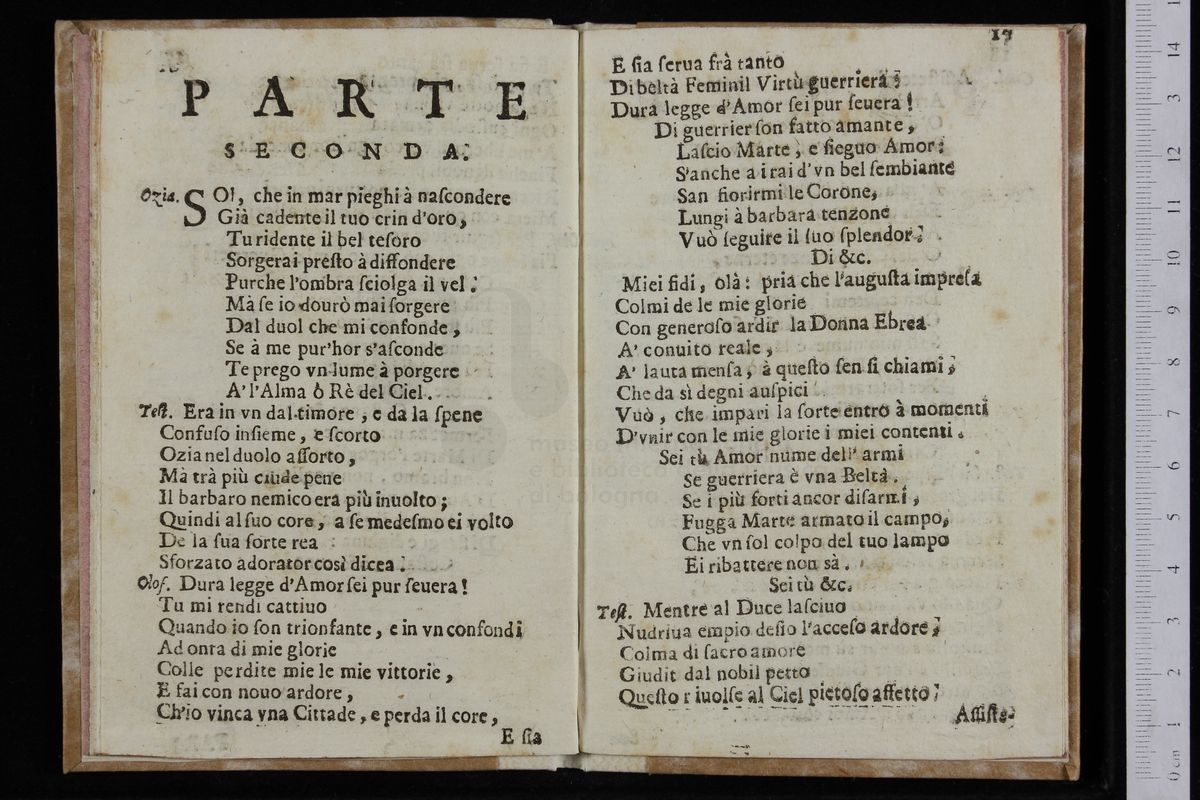 PARTE
SECONDA.
Ozia. SOl, che in mar pieghi à naſcondere
Già cadente il tuo crin d'oro,
Tu ridente il bel teſoro
Sorgerai preſto à diffondere
Purche l'ombra ſciolga il vel.
Mà ſe io dourò mai ſorgere
Dal duol che mi confonde,
Se à me pur'hor s'aſconde
Te prego vn lume à porgere
A' l'Alma ò Rè del Ciel.
Teſt. Era in vn dal timore, e da la ſpene
Confuſo inſieme, e ſcorto
Ozia nel duolo aſſorto,
Mà trà più crude pene
Il barbaro nemico era più inuolto;
Quindi al ſuo core, a ſe medeſmo ei volto
De la ſua ſorte rea
Sforzato adorator così dicea.
Olof. Dura legge d'Amor ſei pur ſeuera!
Tu mi rendi cattiuo
Quando io ſon trionfante, e in vn confondi
Ad onta di mie glorie
Colle perdite mie le mie vittorie,
E fai con nouo ardore,
Ch'io vinca vna Cittade, e perda il core,
E ſia
17
E ſia ſerua frà tanto
Di beltà Feminil Virtù guerriera;
Dura legge d'Amor ſei pur ſeuera!
Di guerrier ſon fatto amante,
Laſcio Marte, e ſieguo Amor:
S'anche a i rai d'vn bel ſembiante
San fiorirmi le Corone,
Lungi à barbara tenzone
Vuò ſeguire il ſuo ſplendor.
Di &c.
Miei fidi, olà: pria che l'auguſta impreſa
Colmi de le mie glorie
Con generoſo ardir la Donna Ebrea
A' conuito reale,
A' lauta menſa, à queſto ſen ſi chiami;
Che da sì degni auſpici
Vuò, che impari la ſorte entrò à momenti
D'vnir con le mie glorie i miei contenti.
Sei tù Amor nume dell' armi
Se guerriera è vna Beltà.
Se i più forti ancor diſarmi,
Fugga Marte armato il campo,
Che vn ſol colpo del tuo lampo
Ei ribattere non sà.
Sei tù &c.
Teſt. Mentre al Duce laſciuo
Nudriua empio deſio l'acceſo ardore;
Colma di ſacro amore
Giudit dal nobil petto
Queſto riuolſe al Ciel pietoſo affetto:
Aſſiſte-